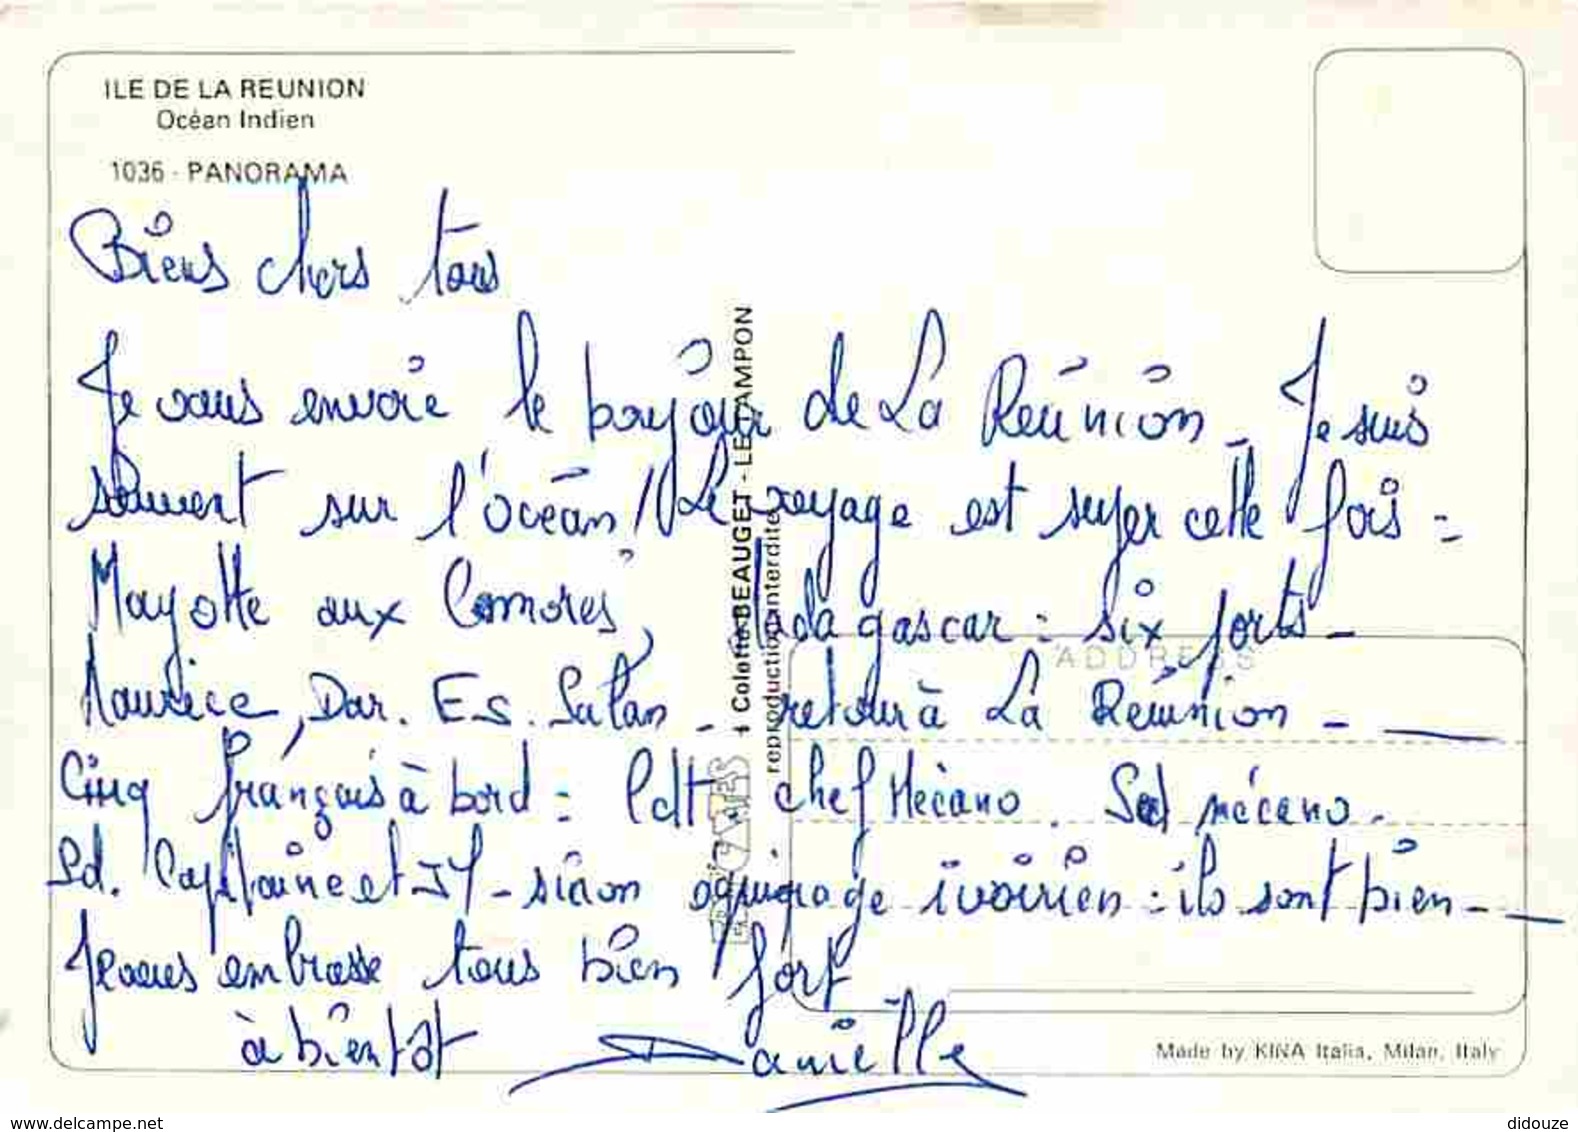 ILE DE LA REUNION
Océan Indien
1036 - PANORAMA
Biens chers tous
Je vous envoie le bonjour de La Réunion - Je suis
souvent sur l'océan! Le voyage est super cette fois =
Mayotte aux Comores, Madagascar : six ports -
Maurice, Dar. Es. Salan - retour à La Réunion -
Cinq français à bord = Cdt. chef Mécano. Sed mécano.
Sd. Capitaine et JY - sinon équipage ivoirien : ils sont bien -
Je vous embrasse tous bien fort
à bientôt Danielle
Colette BEAUGET - LE TAMPON
reproduction interdite
ADDRESS
Made by KINA Italia, Milan, Italy
www.delcampe.net
didouze